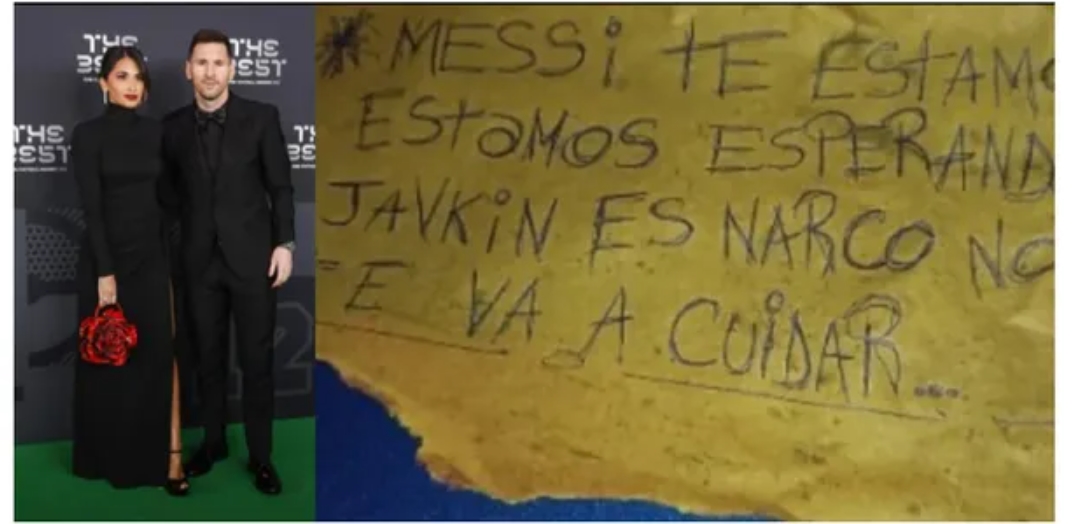 THE
BEST
THE
BEST
THE
BEST
TH
BES
*MESSI TE ESTAMO
ESTAMOS ESPERAND
JAVKIN ES NARCO NO
TE VA A CUIDAR...